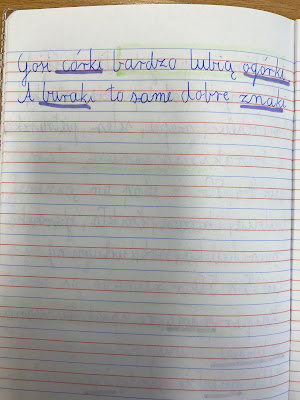 Gosi córki bardzo lubią ogórki
A buraki to same dobre znaki